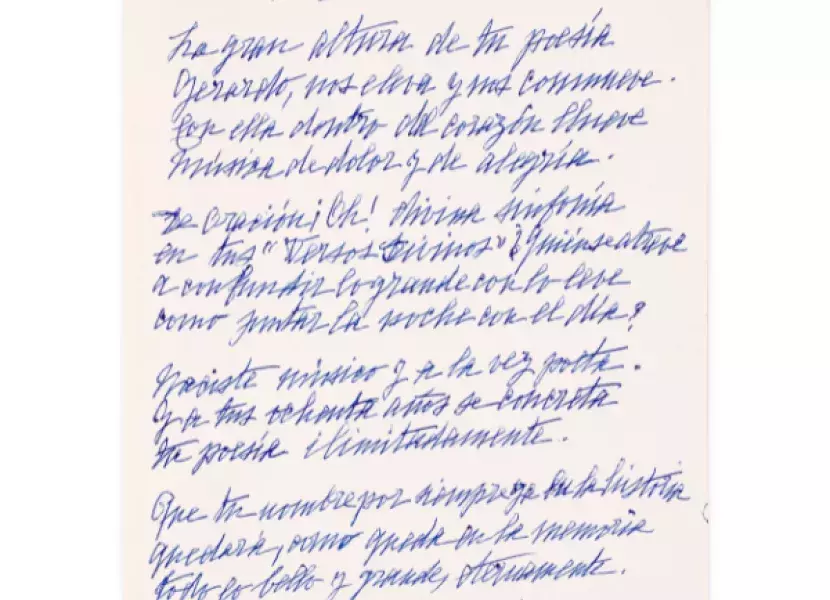 La gran altura de tu poesía
Gerardo, nos eleva y nos conmueve.
Con ella dentro del corazón llueve
música de dolor y de alegría.
De oración ¡Oh! divina sinfonía
en tus "Versos Divinos" ¿Quién se atreve
a confundir lo grande con lo leve
como juntar la noche con el día?
Naciste músico y a la vez poeta.
Y a tus ochenta años se concreta
tu poesía ilimitadamente.
Que tu nombre por siempre ya en la historia
quedará, como queda en la memoria
todo lo bello y grande, eternamente.